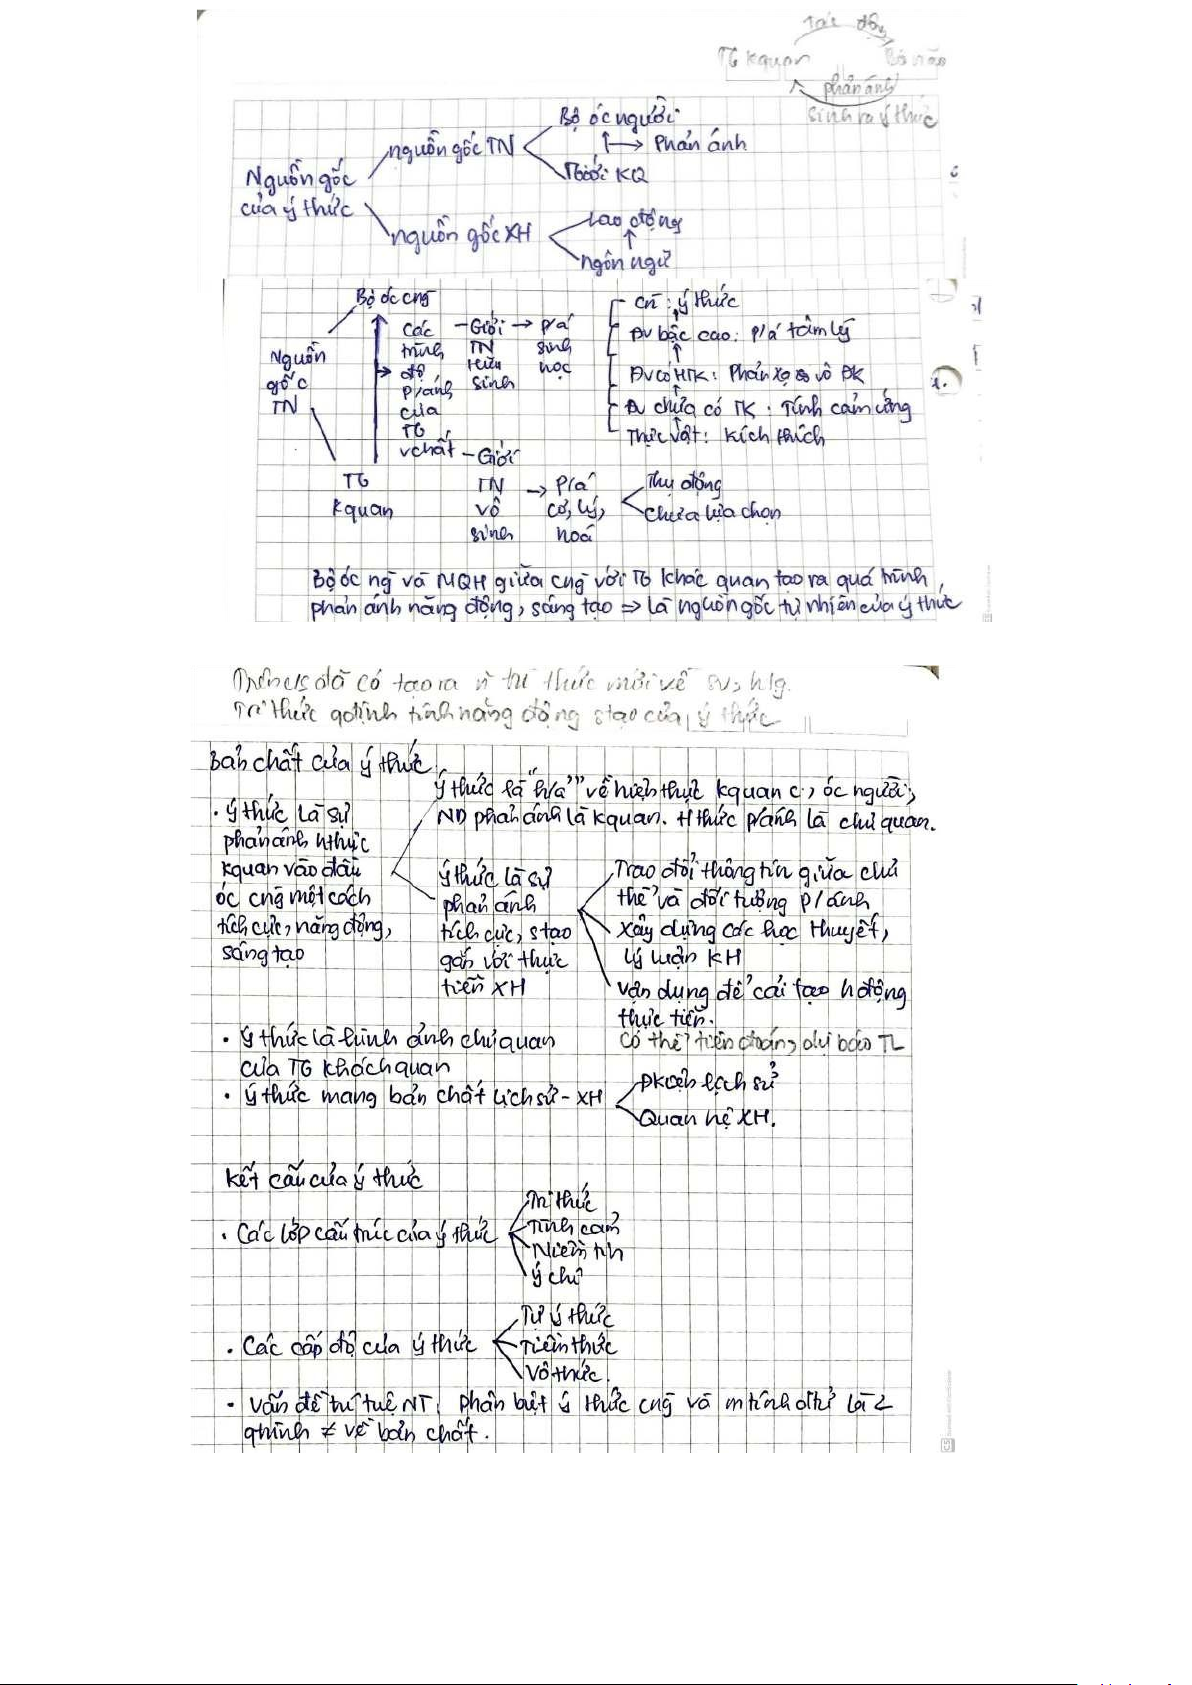 tác động
TG kquan Bộ não
phản ánh
sinh ra ý thức
Bộ óc người
nguồn gốc TN → Phản ánh
Nguồn gốc TGiới KQ
của ý thức lao động
nguồn gốc XH
ngôn ngữ
Bộ óc cng̃
Các - Giới → p/á
trình TN sinh
độ hữu học
p/ánh sinh
của
TG
vchất
Nguồn
gốc
TN
TG
kquan
cn : ý thức
Đv bậc cao : p/á tâm lý
Đv có HTK : Phản xạ vô ĐK
Đv chưa có TK : Tính cảm ứng
Thực vật : kích thích
- Giới
TN → P/á
vô cơ, lý,
sinh hoá
Thụ động
chưa lựa chọn
Bộ óc ng̃ và MQH giữa cng̃ với TG khác quan tạo ra quá trình
phản ánh năng động, sáng tạo => là nguồn gốc tự nhiên của ý thức
Trên cs đã có tạo ra n tri thức mới về sv, htg.
Tri thức qđịnh tính năng động stạo của ý thức
Bản chất của ý thức
Ý thức là "h/a" về hiện thực kquan óc người,
ND phản ánh là kquan. Hthức p/ánh là chủ quan.
• Ý thức là sự
phản ánh hthực
kquan vào đầu
óc cng̃ một cách
tích cực, năng động,
sáng tạo
ý thức là sự
phản ánh
tích cực, stạo
gắn với thực
tiễn XH
Trao đổi thông tin giữa chủ
thể và đối tượng p/ánh
xây dựng các học thuyết,
lý luận KH
vận dụng để cải tạo hđộng
thực tiễn.
có thể tiên đoán, dự báo TL
• Ý thức là hình ảnh chủ quan
của TG khách quan
• Ý thức mang bản chất lịch sử - XH
ĐK lịch sử
Quan hệ XH.
Kết cấu của ý thức
• Các lớp cấu trúc của ý thức
Tri thức
Tình cảm
Niềm tin
Ý chí
• Các cấp độ của ý thức
Tự ý thức
Tiềm thức
Vô thức.
• Vấn đề trí tuệ NT, phân biệt ý thức cng̃ và mtính đtử là 2
qtrình ≠ về bản chất.
CS